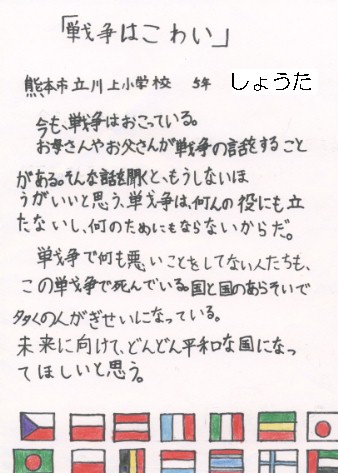 「戦争はこわい」
熊本市立川上小学校 5年 しょうた
今も、戦争はおこっている。
お母さんやお父さんが戦争の話をすること
がある。そんな話を聞くと、もうしないほ
うがいいと思う、戦争は、何んの役にも立
たないし、何のためにもならないからだ。
戦争で何も悪いことをしてない人たちも、
この戦争で死んでいる。国と国のあらそいで
多くの人がぎせいになっている。
未来に向けて、どんどん平和な国になっ
てほしいと思う。